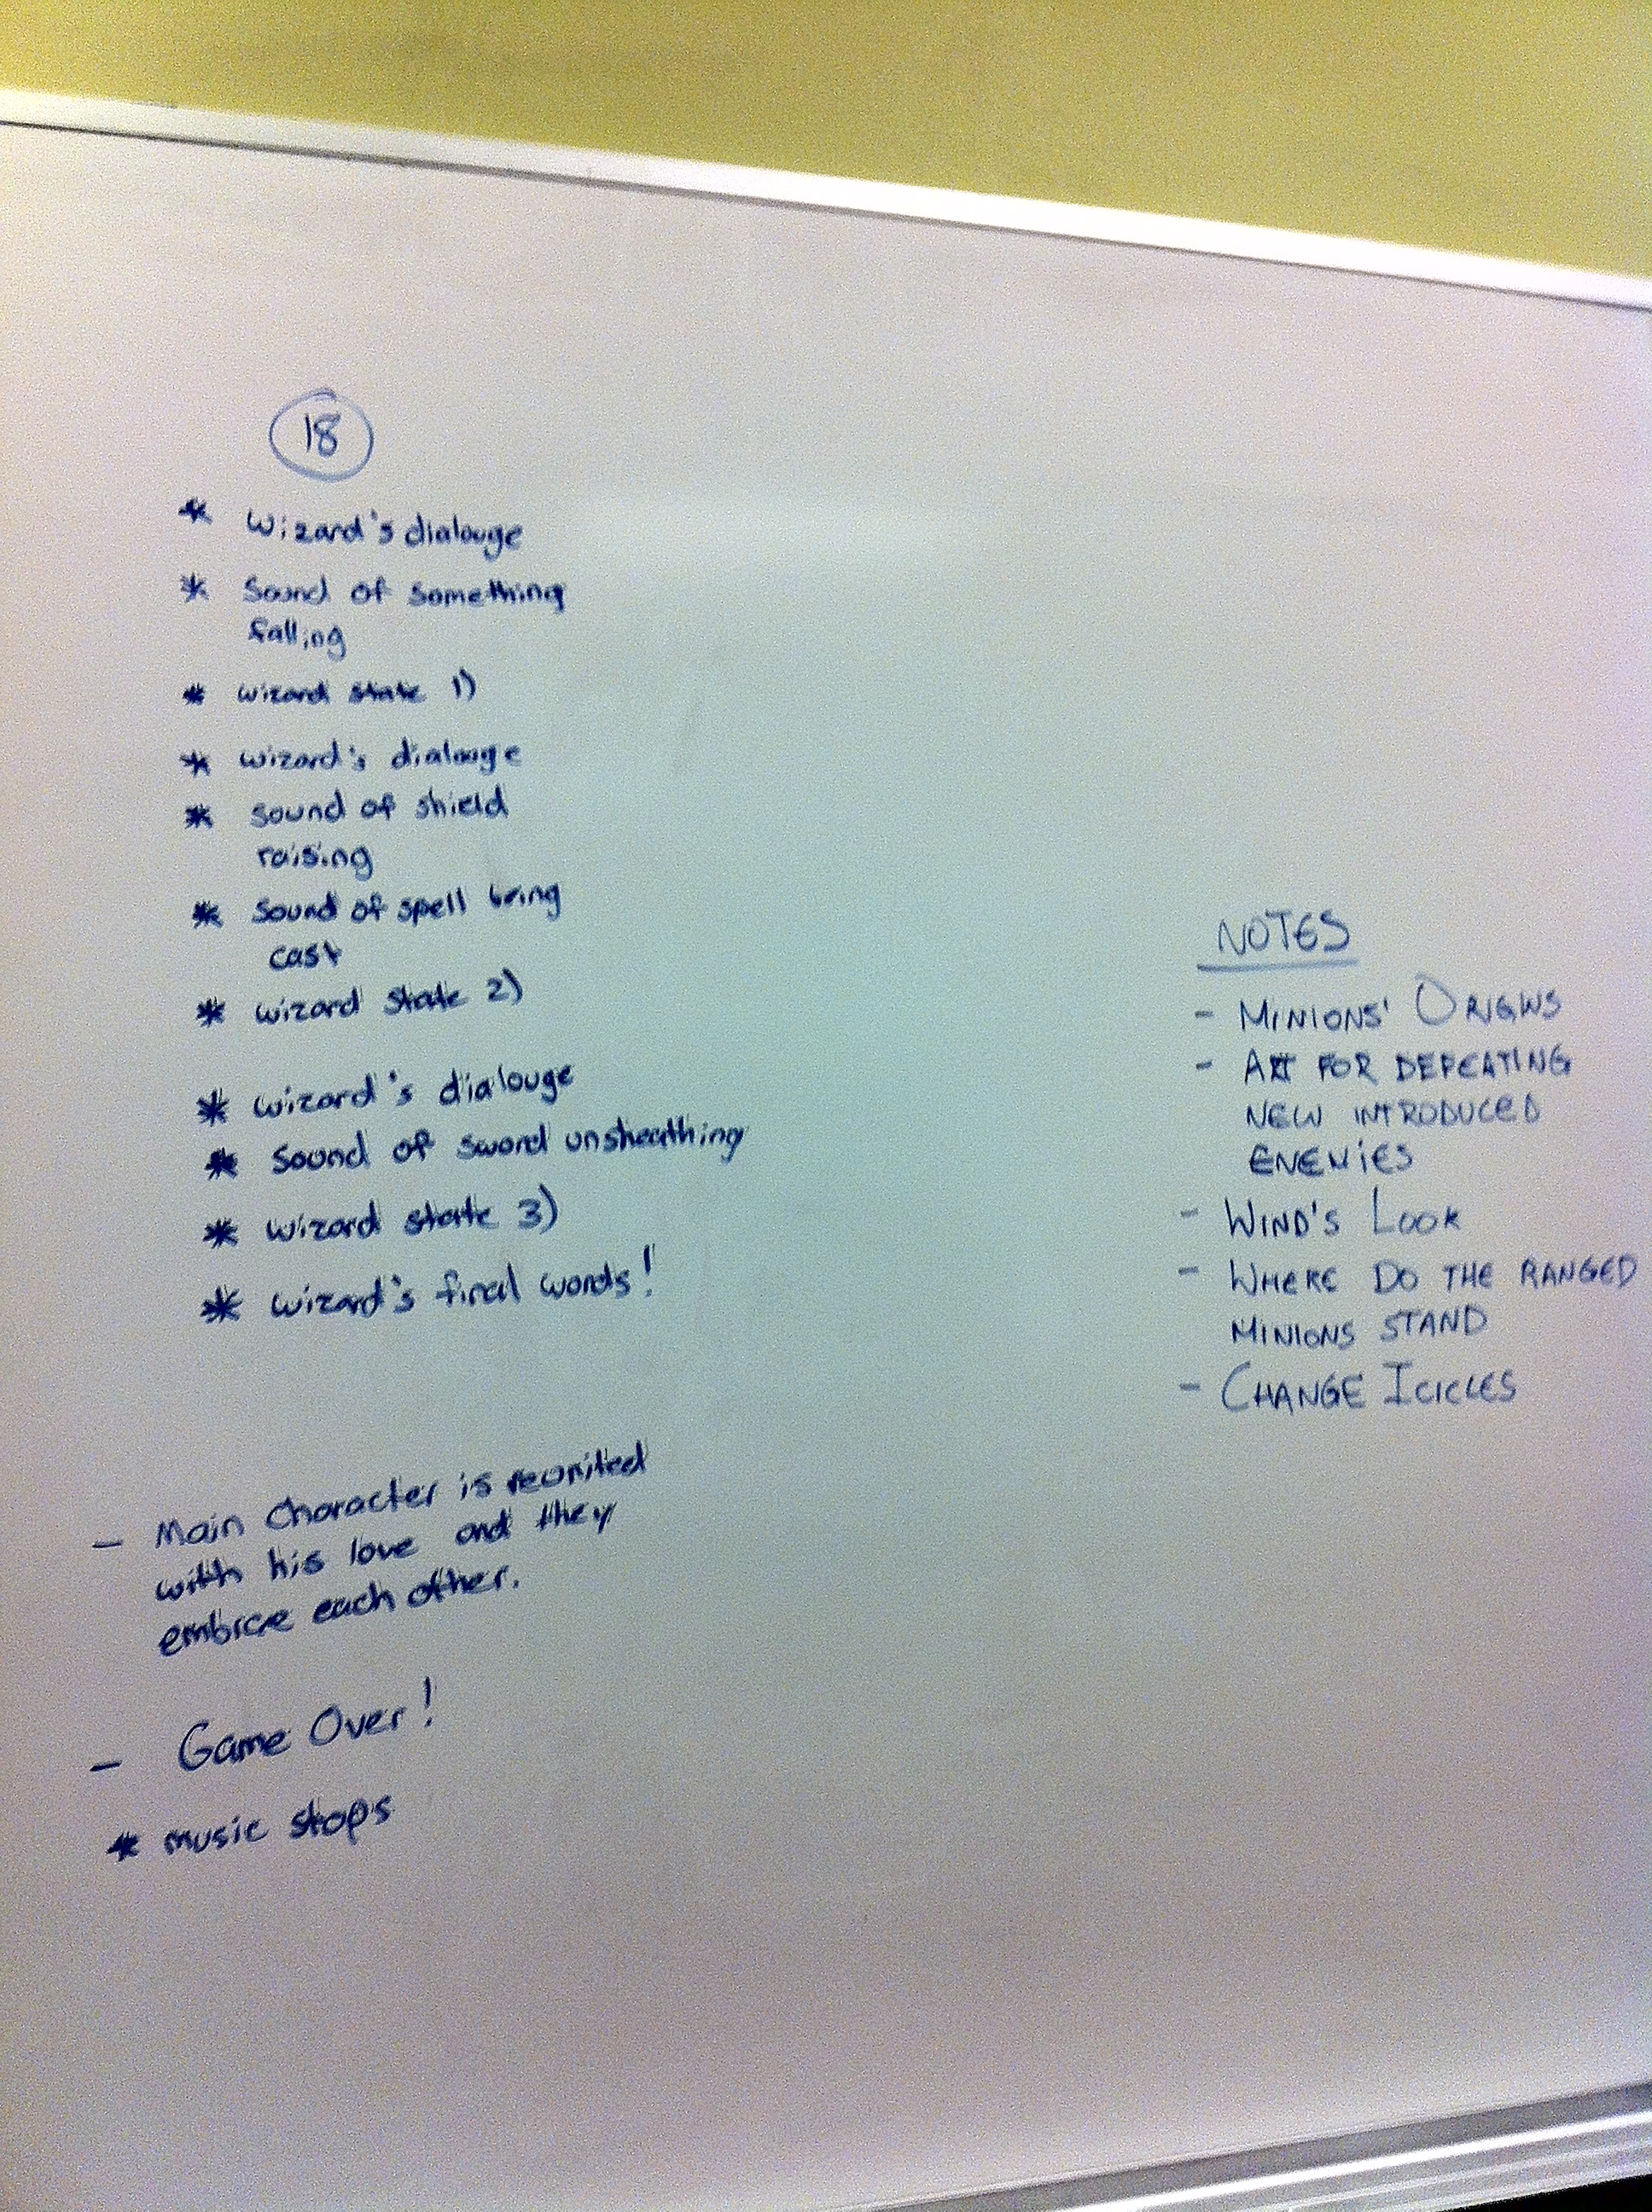 18
* Wizard's dialouge
* Sound of something
falling
* wizard state 1)
* wizard's dialouge
* sound of shield
raising
* Sound of spell being
cast
* wizard state 2)
* wizard's dialouge
* Sound of sword unsheathing
* wizard state 3)
* wizard's final words!
- Main Character is reunited
with his love and they
embrace each other.
- Game Over!
* music stops
NOTES
- MINIONS' ORIGINS
- ART FOR DEFEATING
NEW INTRODUCED
ENEMIES
- WIND'S LOOK
- WHERE DO THE RANGED
MINIONS STAND
- CHANGE ICICLES